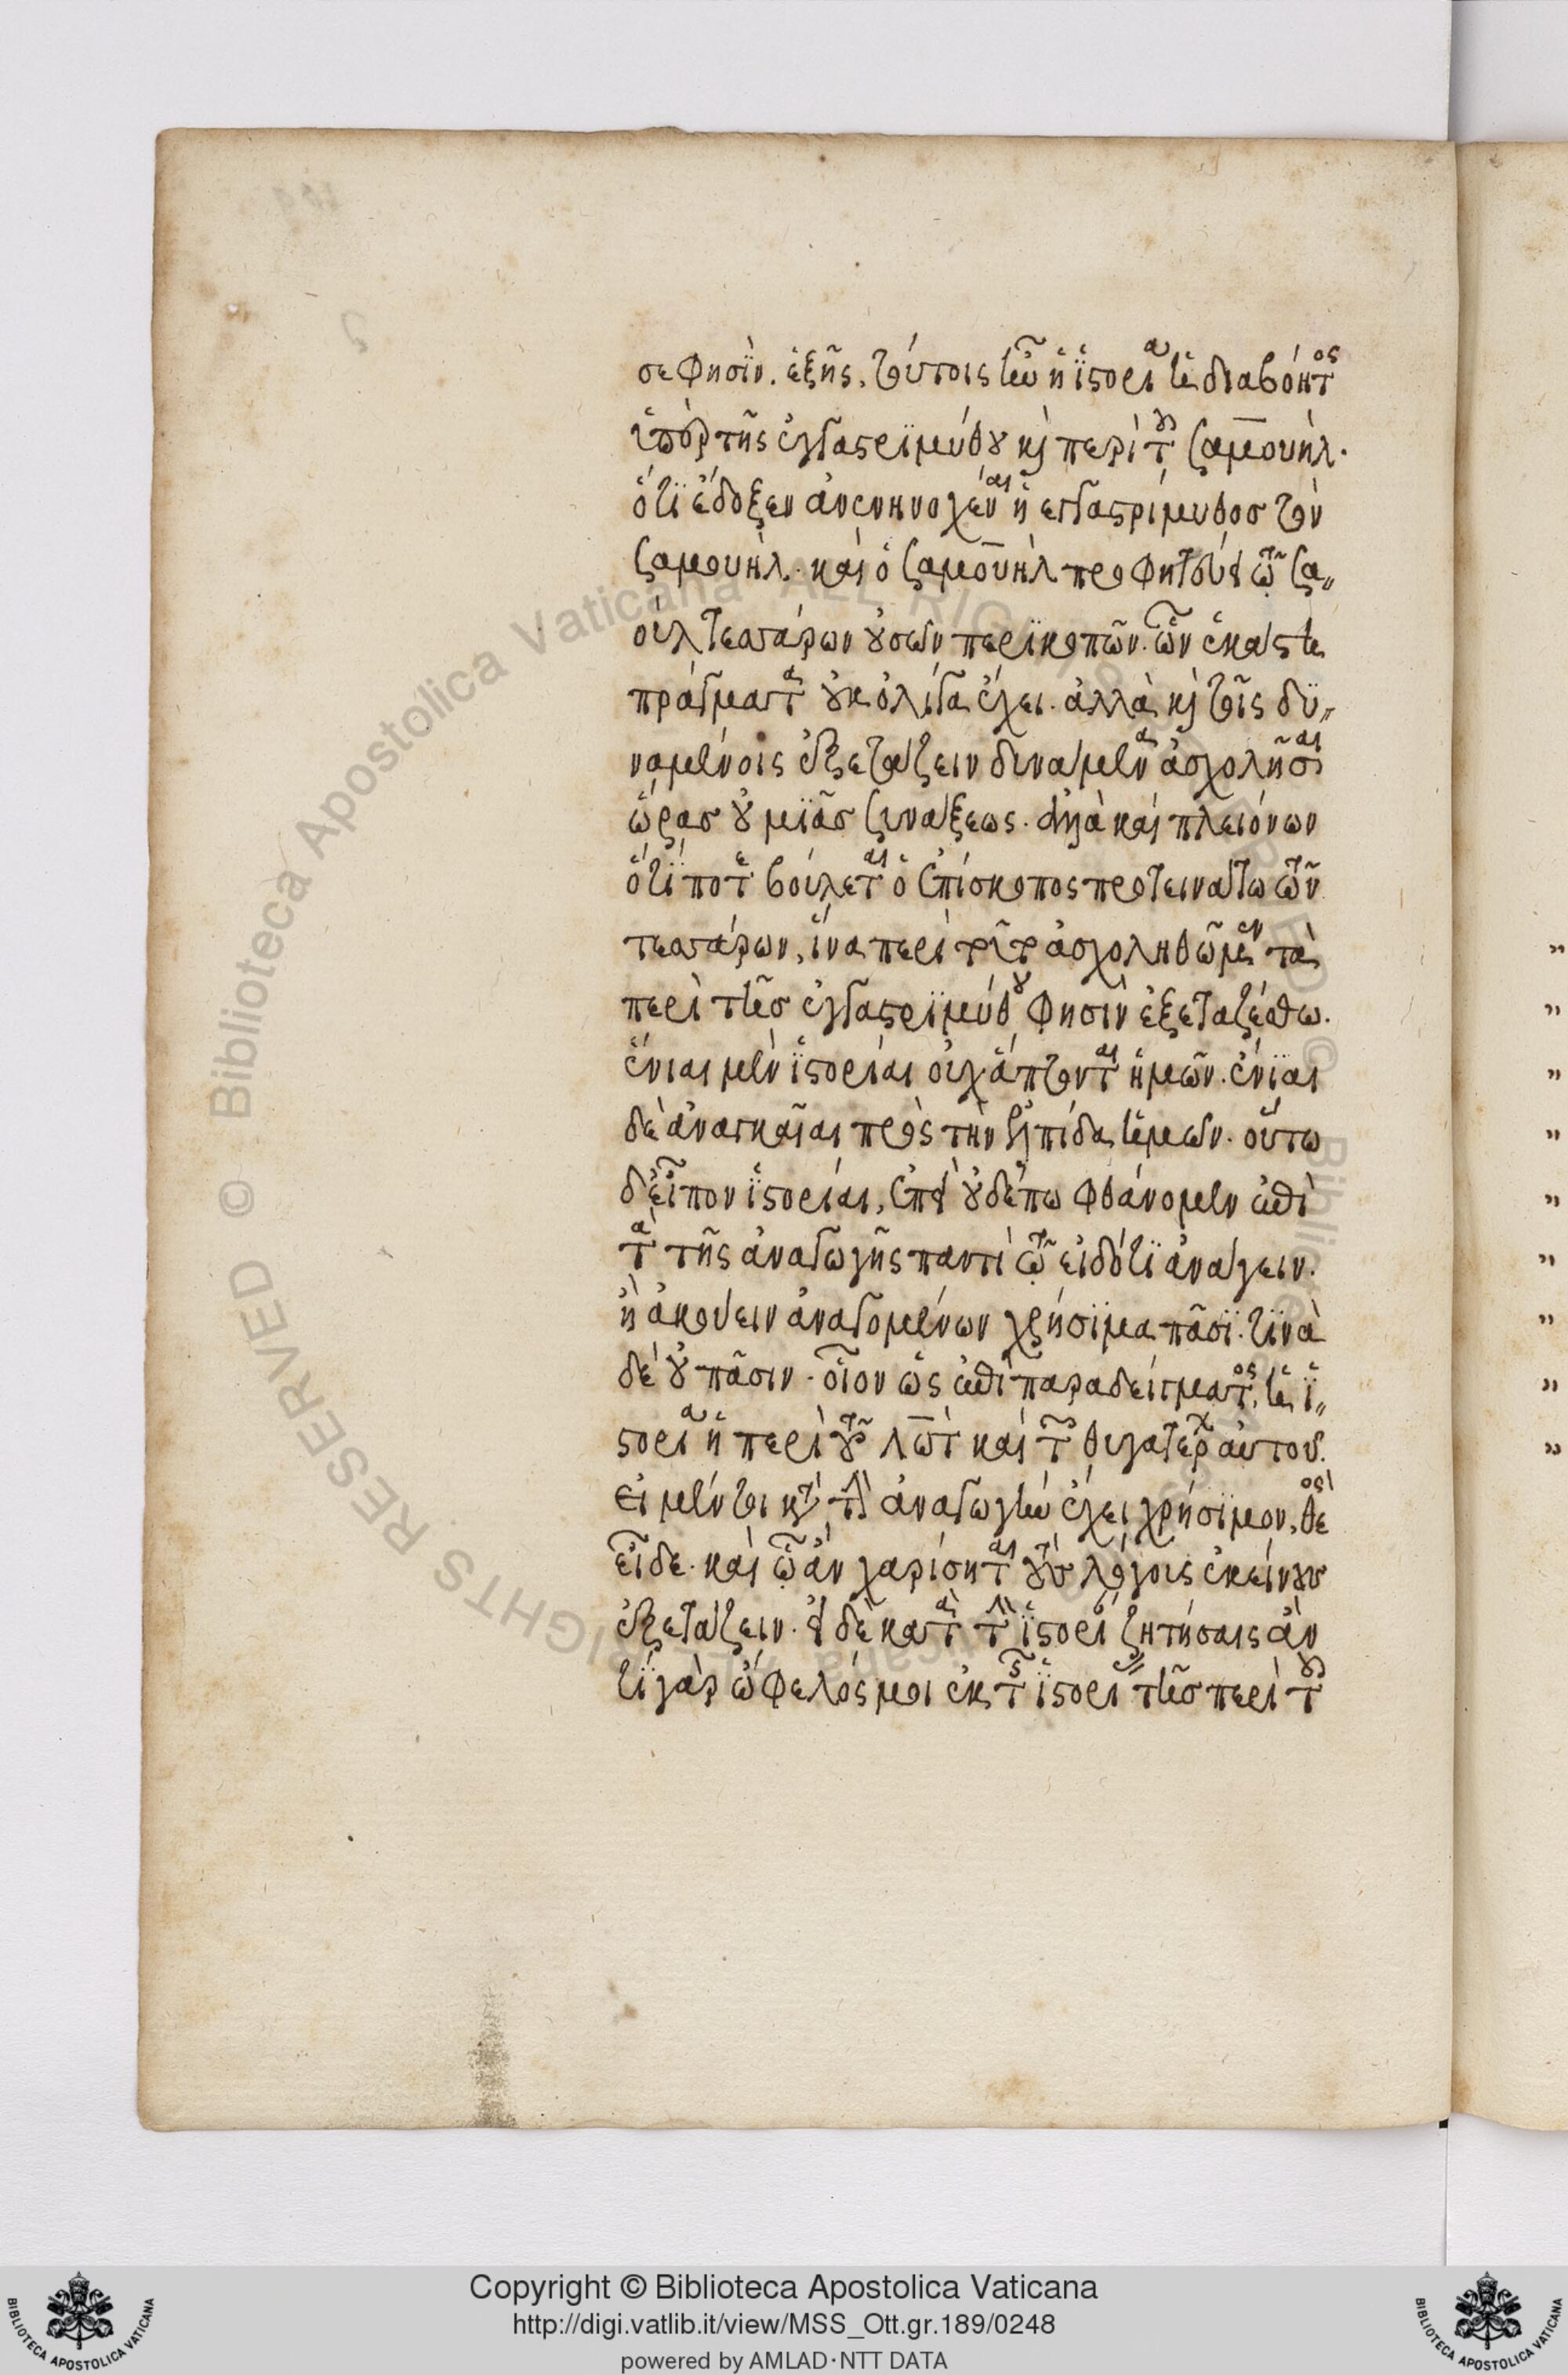 σε φησϊν. ἑξῆς, τούτοις ἦν ἡ ἱστορία ἡ διαβόητος
ὑπὲρ τῆς ἐγγαστριμύθου καὶ περὶ τοῦ σαμουὴλ.
ὅτι ἔδοξεν ἀνενηνοχέναι ἡ εγγαστρίμυθοσ τὸν
σαμουὴλ. καὶ ὁ σαμουὴλ προφητεύει τῶ σα„
οὺλ τεσσάρων οὐσῶν περϊκοπῶν. ὧν ἑκάστη
πράγματα οὐκ ὀλίγα ἔχει. ἀλλὰ καὶ τοῖς δϋ„
ναμένοις ἐξετάζειν δυνάμενα ἀσχολῆσαι
ὥρασ οὐ μϊᾶσ συνάξεως. ἀλλὰ καὶ πλειόνων
ὅτί ποτε βούλεται ὁ ἐπίσκοπος προτεινάτω τῶν
τεσσάρων, ἵνα περὶ τοῦτο ἀσχοληθῶμεν τὰ
περὶ τῆσ ἐγγαστρϊμύθου φησὶν ἐξεταζέσθω.
ἔνιαι μὲν ἱστορίαι οὐχ ἅπτονται ἡμῶν. ἔνϊαι
δὲ ἀναγκαῖαι πρὸς τὴν ἐλπίδα ἡμῶν. οὕτω
δὲ εἶπον ἱστορίαι, ἐπεὶ οὐδέπω φθάνομεν ἐπὶ
τὰ τῆς ἀναγωγῆς παντὶ τῶ εἰδότϊ ἀνάγειν.
ἢ ἀκούειν ἀναγομένων χρήσϊμα πᾶσϊ. τϊνὰ
δὲ οὐ πᾶσιν. οἷον ὡς ἐπὶ παραδείγματος, ἡ ἱ„
στορία ἡ περὶ τοῦ λὼτ καὶ τῶν θυγατέρων αὐτοῦ.
εἰ μέν τι κατὰ τὴν ἀναγωγὴν ἔχει χρήσϊμον, θεὸς
εἶδε. καὶ ὧ ἂν χαρίσηται τοὺς λόγοις ἐκείνους
ἐξετάζειν. εἰ δὲ κατὰ τὴν ἱστορίαν ζητήσαις ἂν
τί γὰρ ὤφελός μοι ἐκ τῆς ἱστορίας τῆσ περὶ τοῦ
Copyright © Biblioteca Apostolica Vaticana
http://digi.vatlib.it/view/MSS_Ott.gr.189/0248
powered by AMLAD·NTT DATA